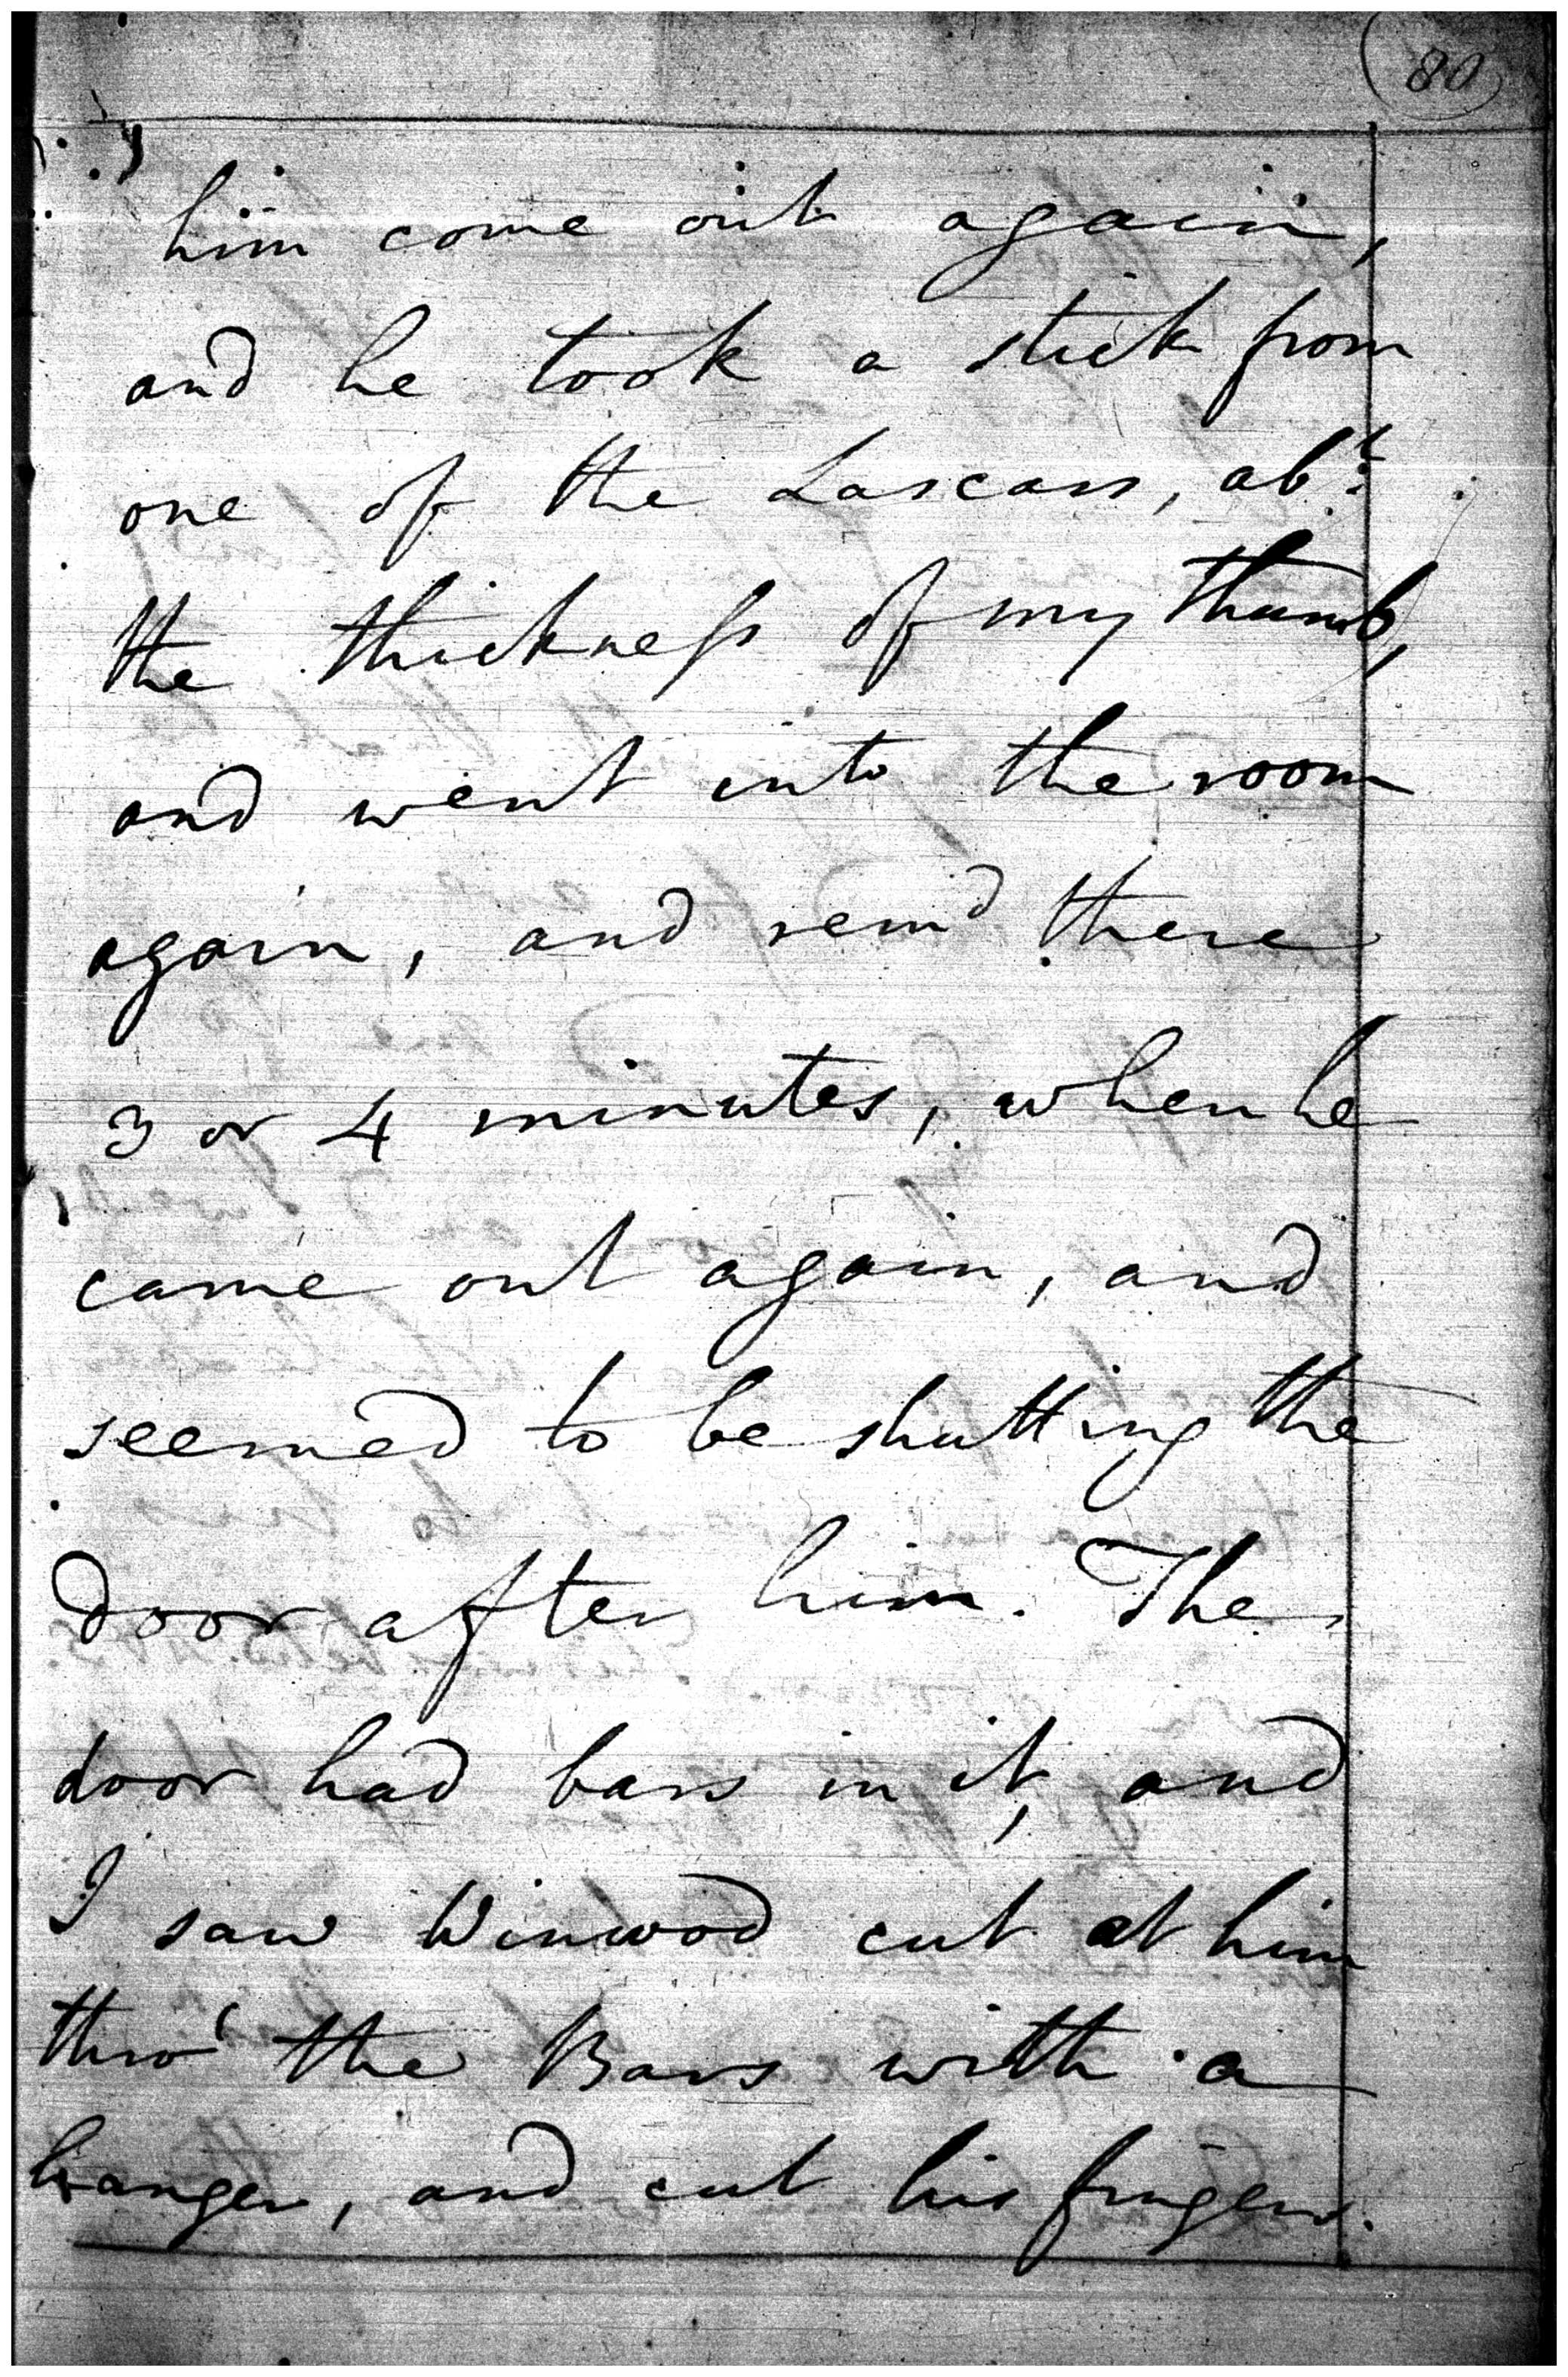 80
him come out again,
and he took a stick from
one of the Lascars, abt.
the thickness of my thumb,
and went into the room
again, and remd there
3 or 4 minutes, when he
came out again, and
seemed to be shutting the
door after him. The
door had bars in it, and
I saw Winwood cut at him
thro' the Bars with a
hanger, and cut his fingers.